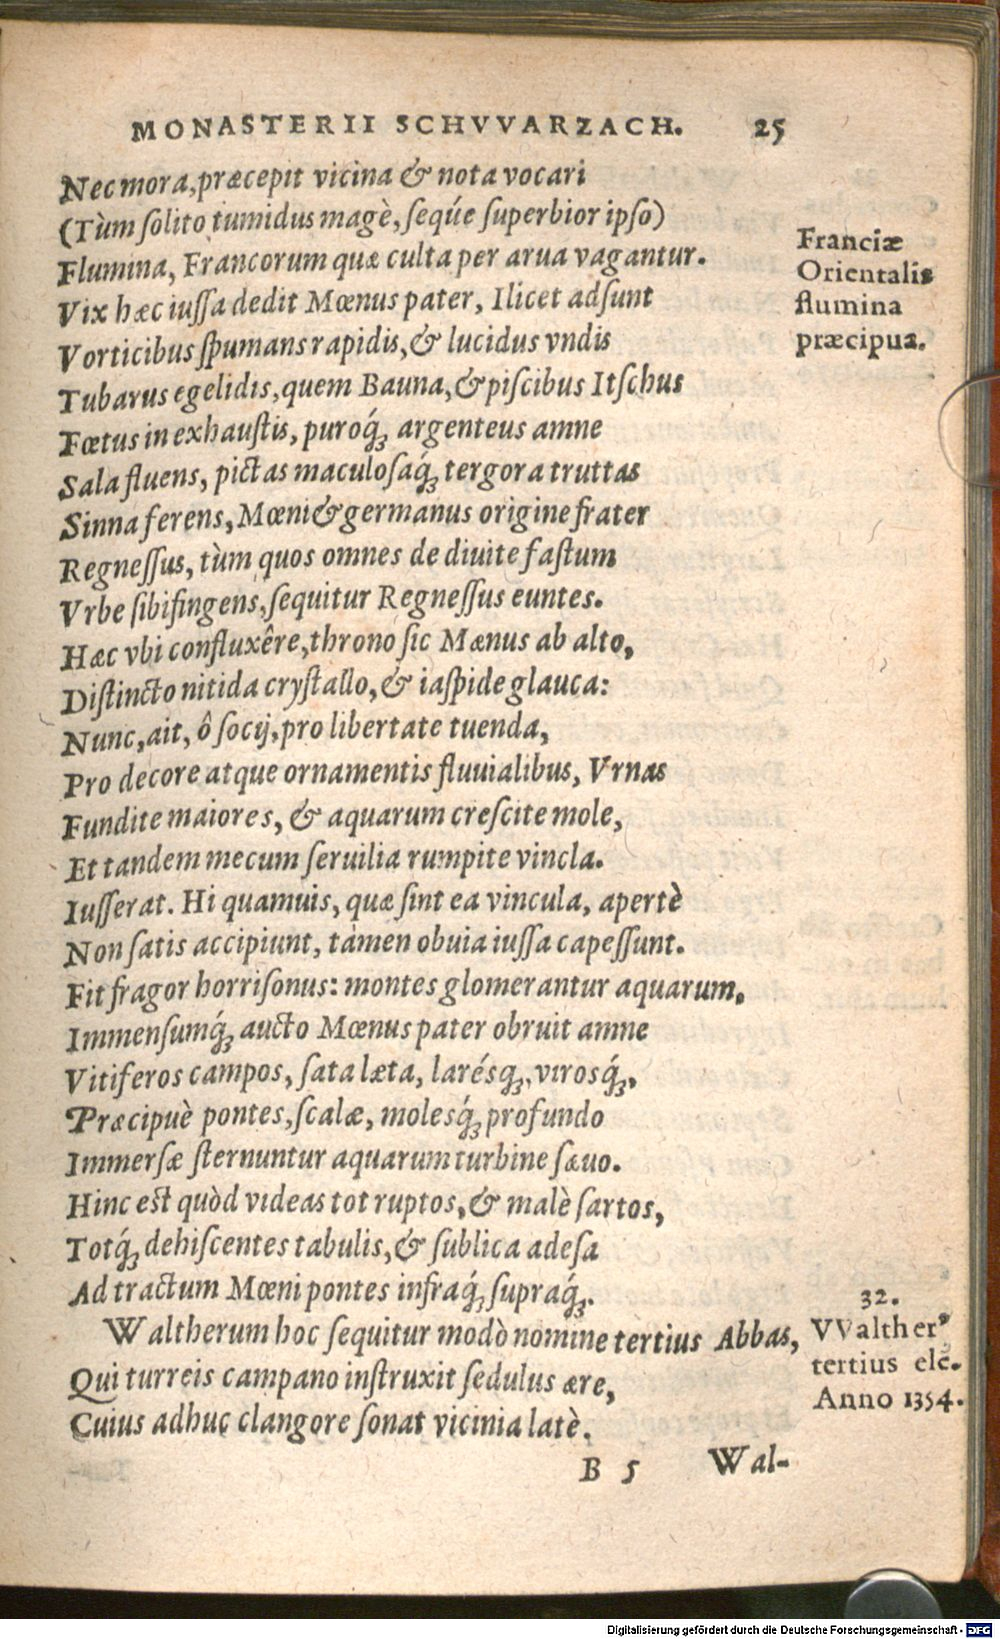 MONASTERII SCHVVARZACH. 25
Nec mora, præcepit vicina & nota vocari
(Tùm solito tumidus magè, seq́ue superbior ipso)
Flumina, Francorum quæ culta per arua vagantur.
Vix hæc iussa dedit Mœnus pater, Ilicet adsunt
Vorticibus spumans rapidis, & lucidus vndis
Tubarus egelidis, quem Bauna, & piscibus Itschus
Fœtus in exhaustis, puroq́ꝫ argenteus amne
Sala fluens, pictas maculosaq́ꝫ tergora truttas
Sinna ferens, Mœni & germanus origine frater
Regnessus, tùm quos omnes de diuite fastum
Vrbe sibi fingens, sequitur Regnessus euntes.
Hæc vbi confluxêre, throno sic Mænus ab alto,
Distincto nitida crystallo, & iaspide glauca:
Nunc, ait, ô socij, pro libertate tuenda,
Pro decore atque ornamentis fluuialibus, Vrnas
Fundite maiores, & aquarum crescite mole,
Et tandem mecum seruilia rumpite vincla.
Iusserat. Hi quamuis, quæ sint ea vincula, apertè
Non satis accipiunt, tamen obuia iussa capessunt.
Fit fragor horrisonus: montes glomerantur aquarum.
Immensumq́ꝫ aucto Mœnus pater obruit amne
Vitiferos campos, sata læta, larésqꝫ, virosq́ꝫ,
Præcipuè pontes, scalæ, molesq́ꝫ profundo
Immersæ sternuntur aquarum turbine sæuo.
Hinc est quòd videas tot ruptos, & malè sartos,
Totq́ꝫ dehiscentes tabulis, & sublica adesa
Ad tractum Mœni pontes infraq́ꝫ supraq́ꝫ.
Waltherum hoc sequitur modò nomine tertius Abbas,
Qui turreis campano instruxit sedulus ære,
Cuius adhuc clangore sonat vicinia latè.
B 5 Wal-
Franciæ
Orientalis
flumina
præcipua.
32.
VValther9
tertius ele.
Anno 1354.
Digitalisierung gefördert durch die Deutsche Forschungsgemeinschaft - DFG